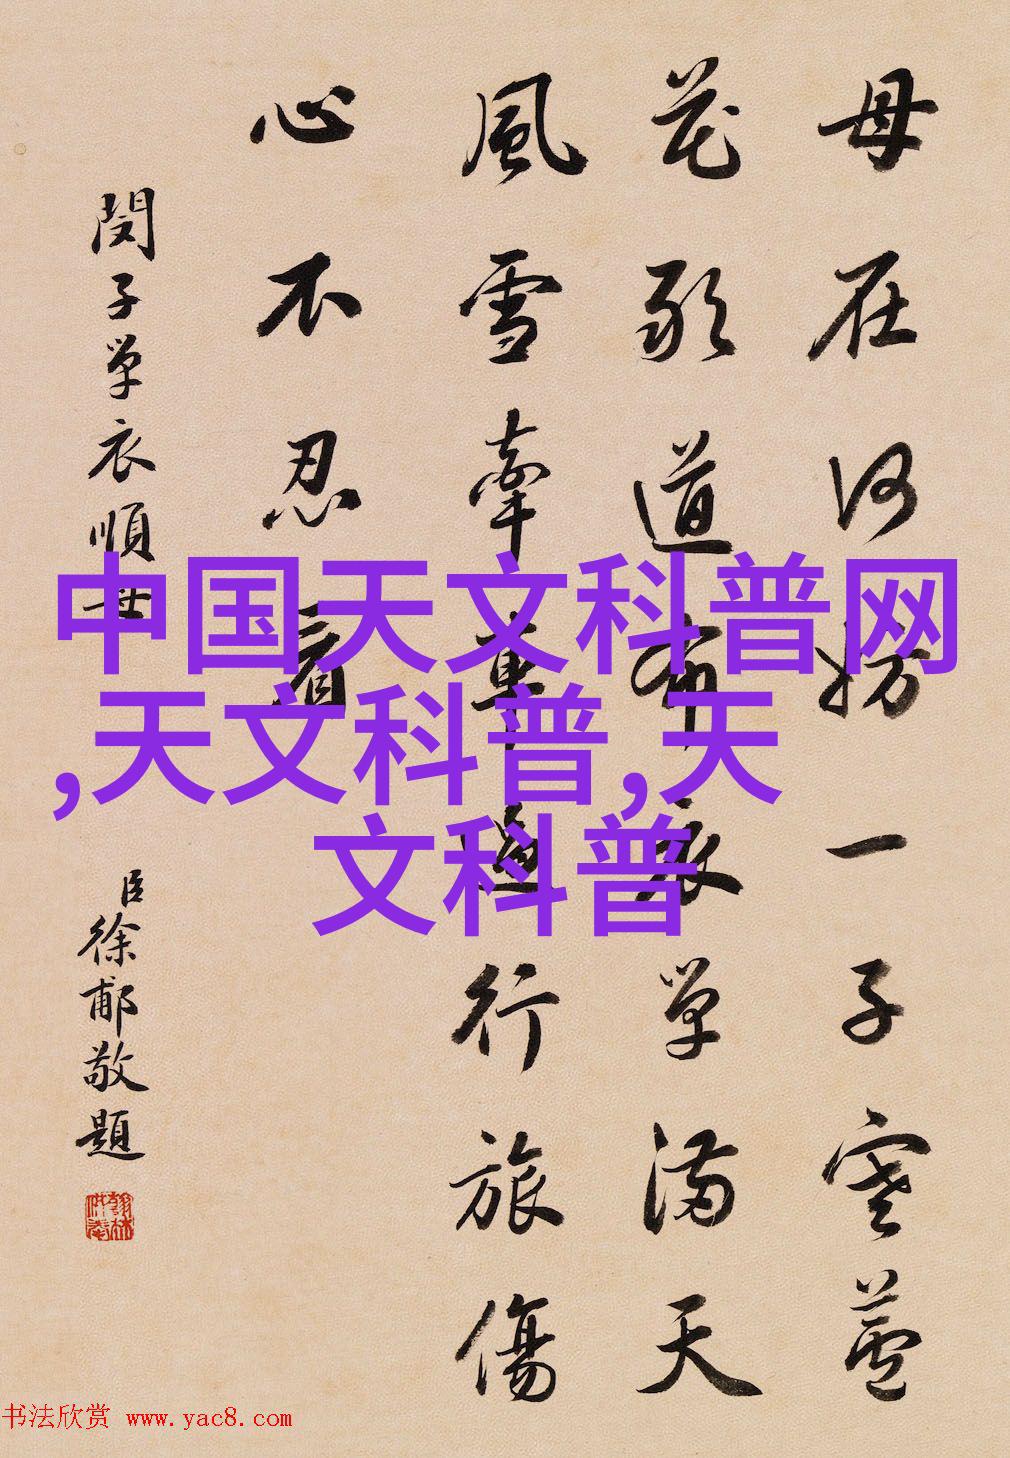 母在何妨一子寒蘆
花敢道布衣單滿天
風雪牽車行旅傷
心不忍看
閔子單衣順母
臣徐郙敬題
中国天文科普网
,天文科普,天
文科普
书法欣赏 www.yac8.com